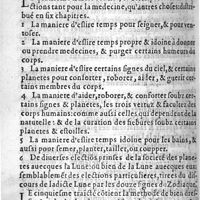 ctions tant pour la medecine, qu'autres choses distri
bué en six chapitres.
1 La maniere d'eslire temps pour seigner, & pour ven-
toser.
2 La maniere d'eslire temps propre & idoine à donner
ou prendre medecines, & purger certains humeurs du
corps.
3 La maniere d'eslire certains signes du ciel, & certains
planetes pour conforter, roborer, aider, & guerir cer-
tains membres du corps.
4 La maniere d'aider, roborer, & conforter soubz cer-
tains signes & planetes, les trois vertuz & facultez du
corps humain: comme aussi celles qui dependent de la
naturelle: & de la curation des fiebures soubz certains
planetes & estoilles.
5 La maniere d'eslire temps idoine pour les bains, &
aussi pour semer, planter, tailler, ou coupper.
6 De diuerses electiōs prinses de la Societé des planetes
auecques la Lune où bien de la Lune auecques eux:
semblablemēt des electiōs particulieres, tirees du dis-
cours de ladicte Lune par les douze signes du Zodiaque.
E cinquiesme traicté côtient la methode de bien